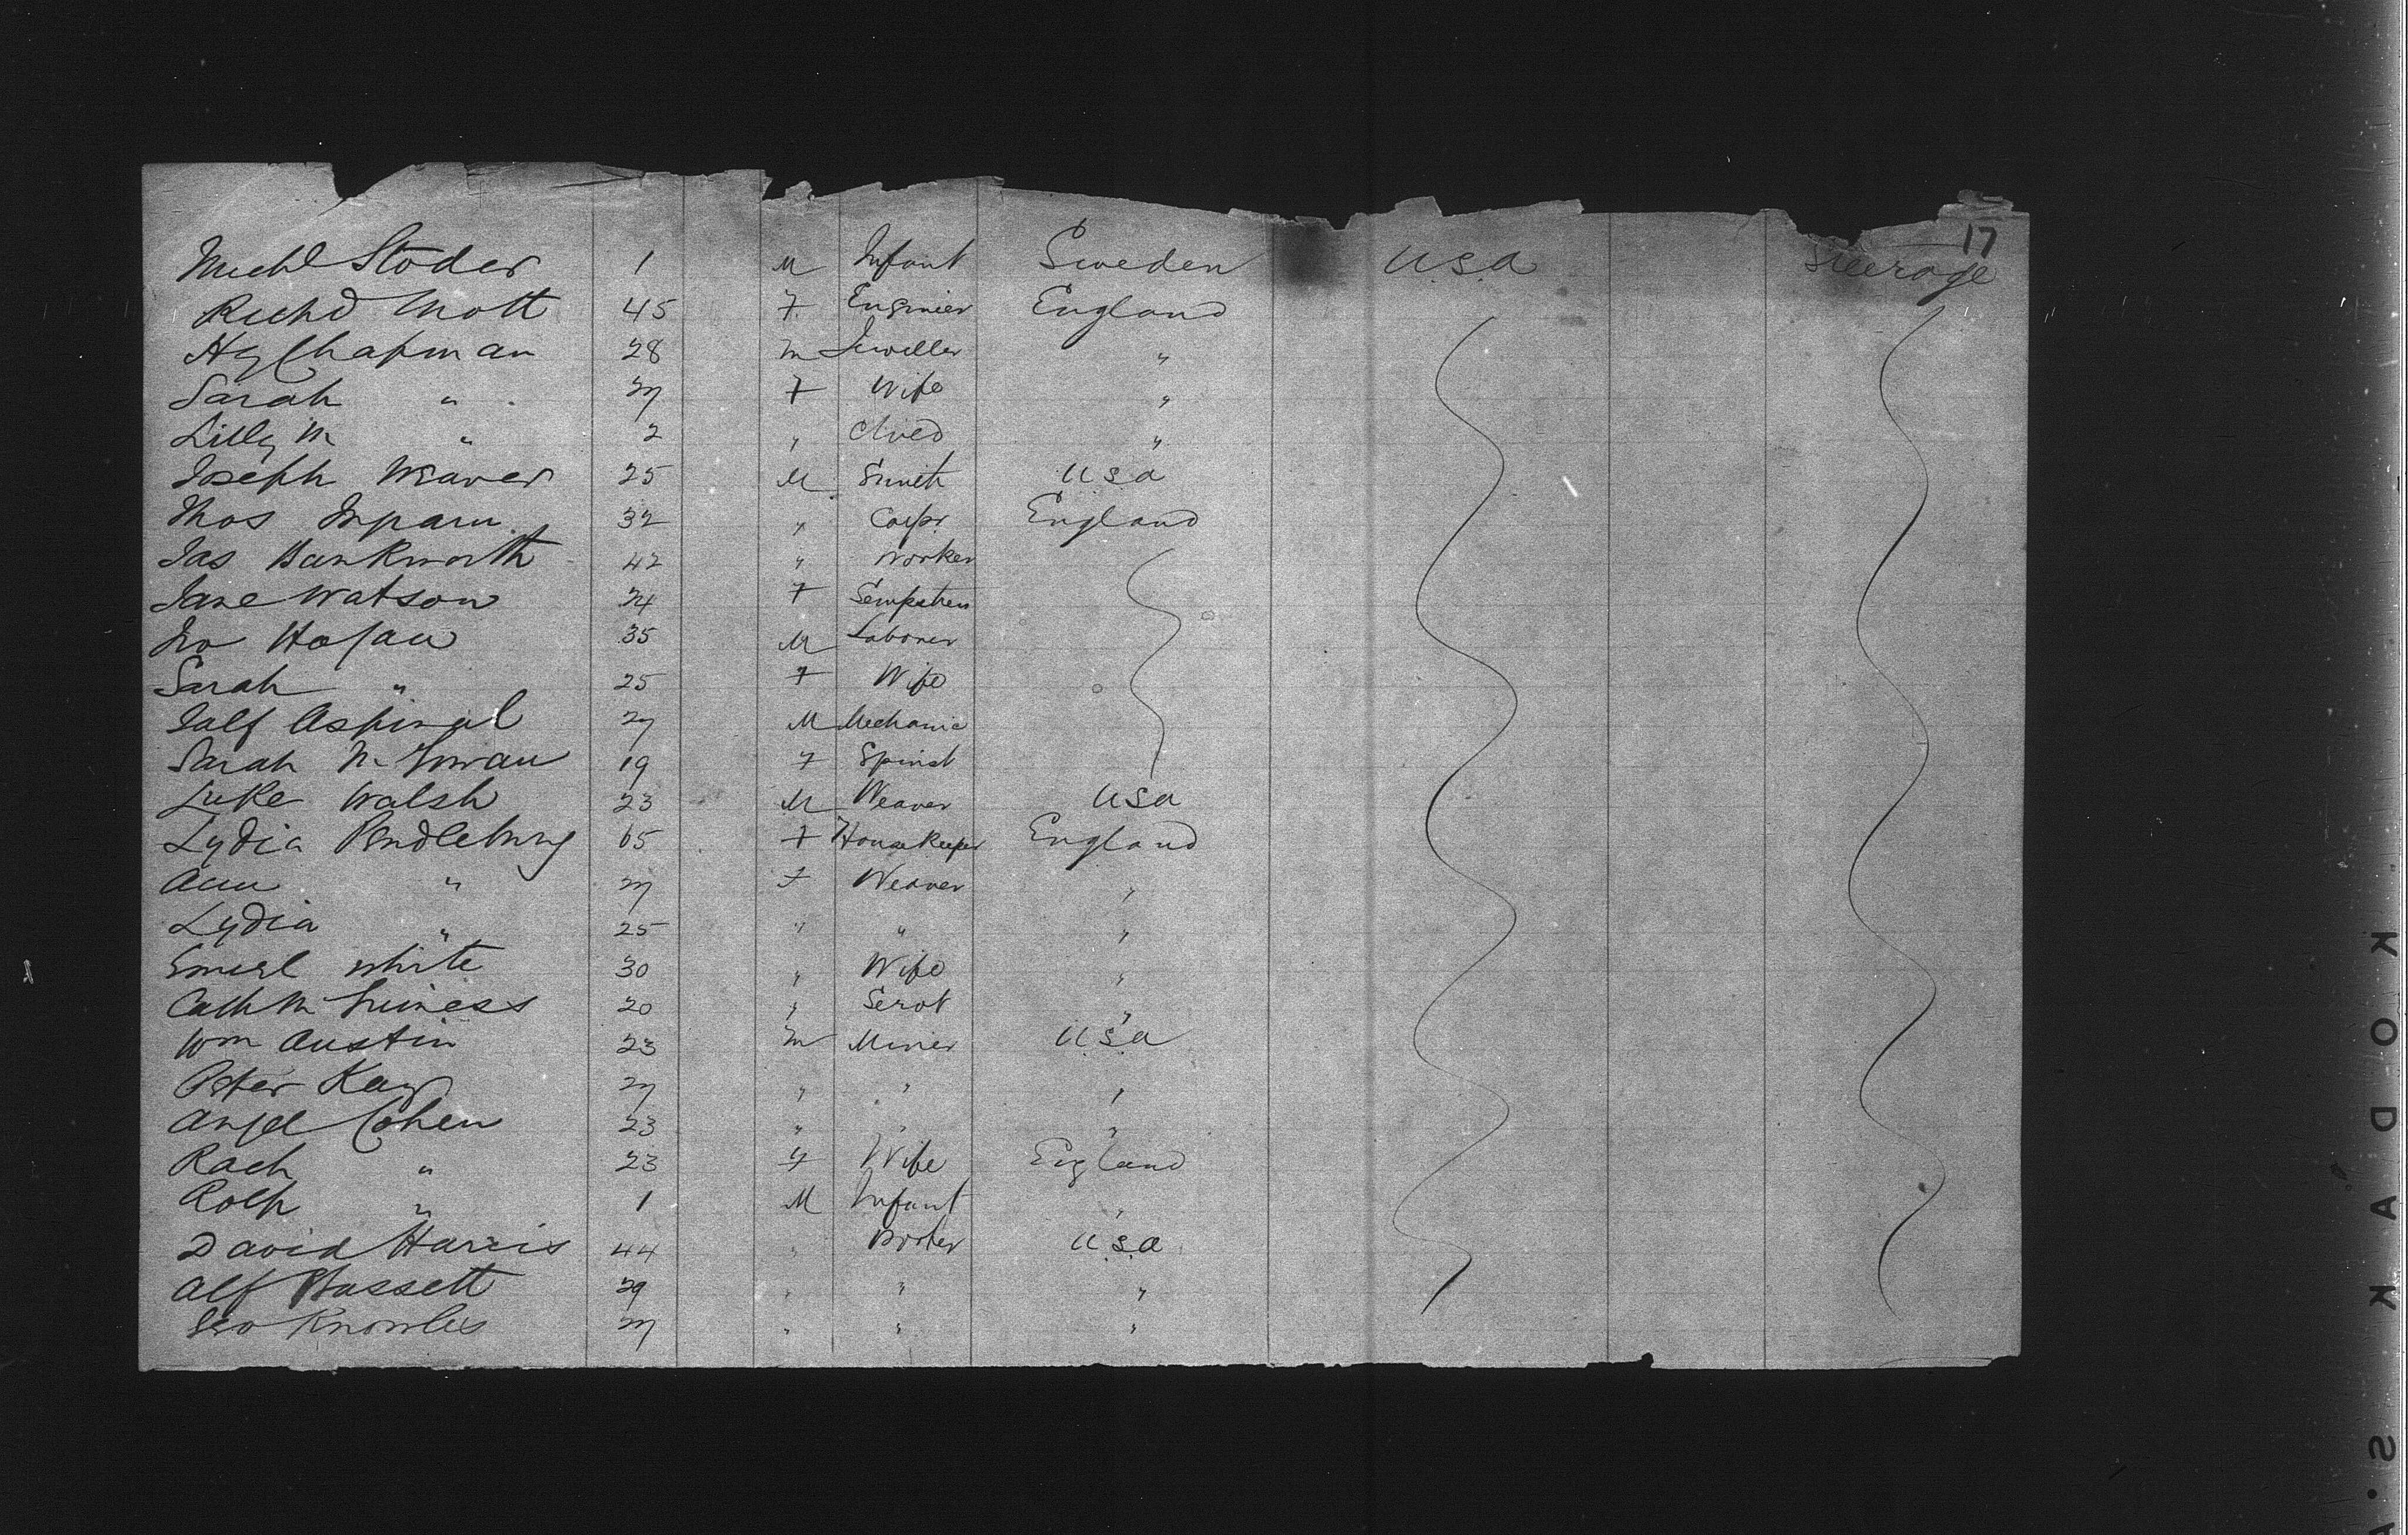 17
Michl Stoder 1 M Infant Sweden USA Steerage
Richd Mott 45 F Enginier England
Hy Chapman 28 M Jeweller England "
Sarah " 27 F Wife "
Lilly M " 2 " Child "
Joseph Weaver 25 M Smith USA
Thos Ingram 32 " Carpr England
Jas Hawkworth 42 " Worker
Jane Watson 24 F Sempstress
Jno Hogan 35 M Laborer
Sarah " 25 F Wife
Ralf Aspinal 27 M Mechanic
Sarah McGowan 19 F Spinst
Luke Walsh 23 M Weaver USA
Lydia Pendlebury 65 F Housekeeper England
Ann " 27 F Weaver "
Lydia " 25 " " "
White 30 " Wife "
Cath McGuiness 20 " Servt "
Wm Austin 23 M Miner USA
Peter Kay 27 " " "
Angel Cohen 23 " " "
Rach " 23 F Wife England
Rolph " 1 M Infant "
David Harris 44 " Porter USA
Alf Hassett 29 " " "
Geo Knowles 27 " " "
KODAK S.